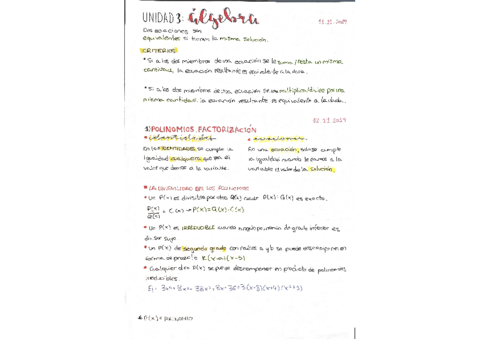 UNIDAD 3: álgebra
Dos ecuaciones son
equivalentes si tienen la misma solución.
CRITERIOS
* Si a los dos miembros de una ecuación se le suma / resta un misma
cantidad, la ecuación resultante es equivalente a la dada.
* Si a los dos miembros de una ecuación se multiplica/divide por una
misma cantidad. la ecuación resultante es equivalente a la dada.
12.11.2019
1) POLINOMIOS FACTORIZACIÓN
* identidades
En las IDENTIDADES se cumple la
igualdad cualquiera que sea el
valor que demos a la variable.
* ecuaciones
En una ecuación, solo se cumple
la igualdad cuando le damos a la
variable el valor de la solución
LA DIVISIBILIDAD DE LOS POLINOMIOS
• Un P(x) es divisible por otro Q(x) cuando P(x):Q(x) es exacta.
P(x)/Q(x) = C(x) → P(x)=Q(x)·C(x)
• Un P(x) es IRREDUCIBLE cuando ningún polinomio de grado inferior es
divisor suyo
• Un P(x) de segundo grado con raíces a y b se puede descomponer en
forma de producto K(x-a)(x-b)
• Cualquier otro P(x) se puede descomponer en producto de polinomios
irreducibles.
* P(x) = POLINOMIO